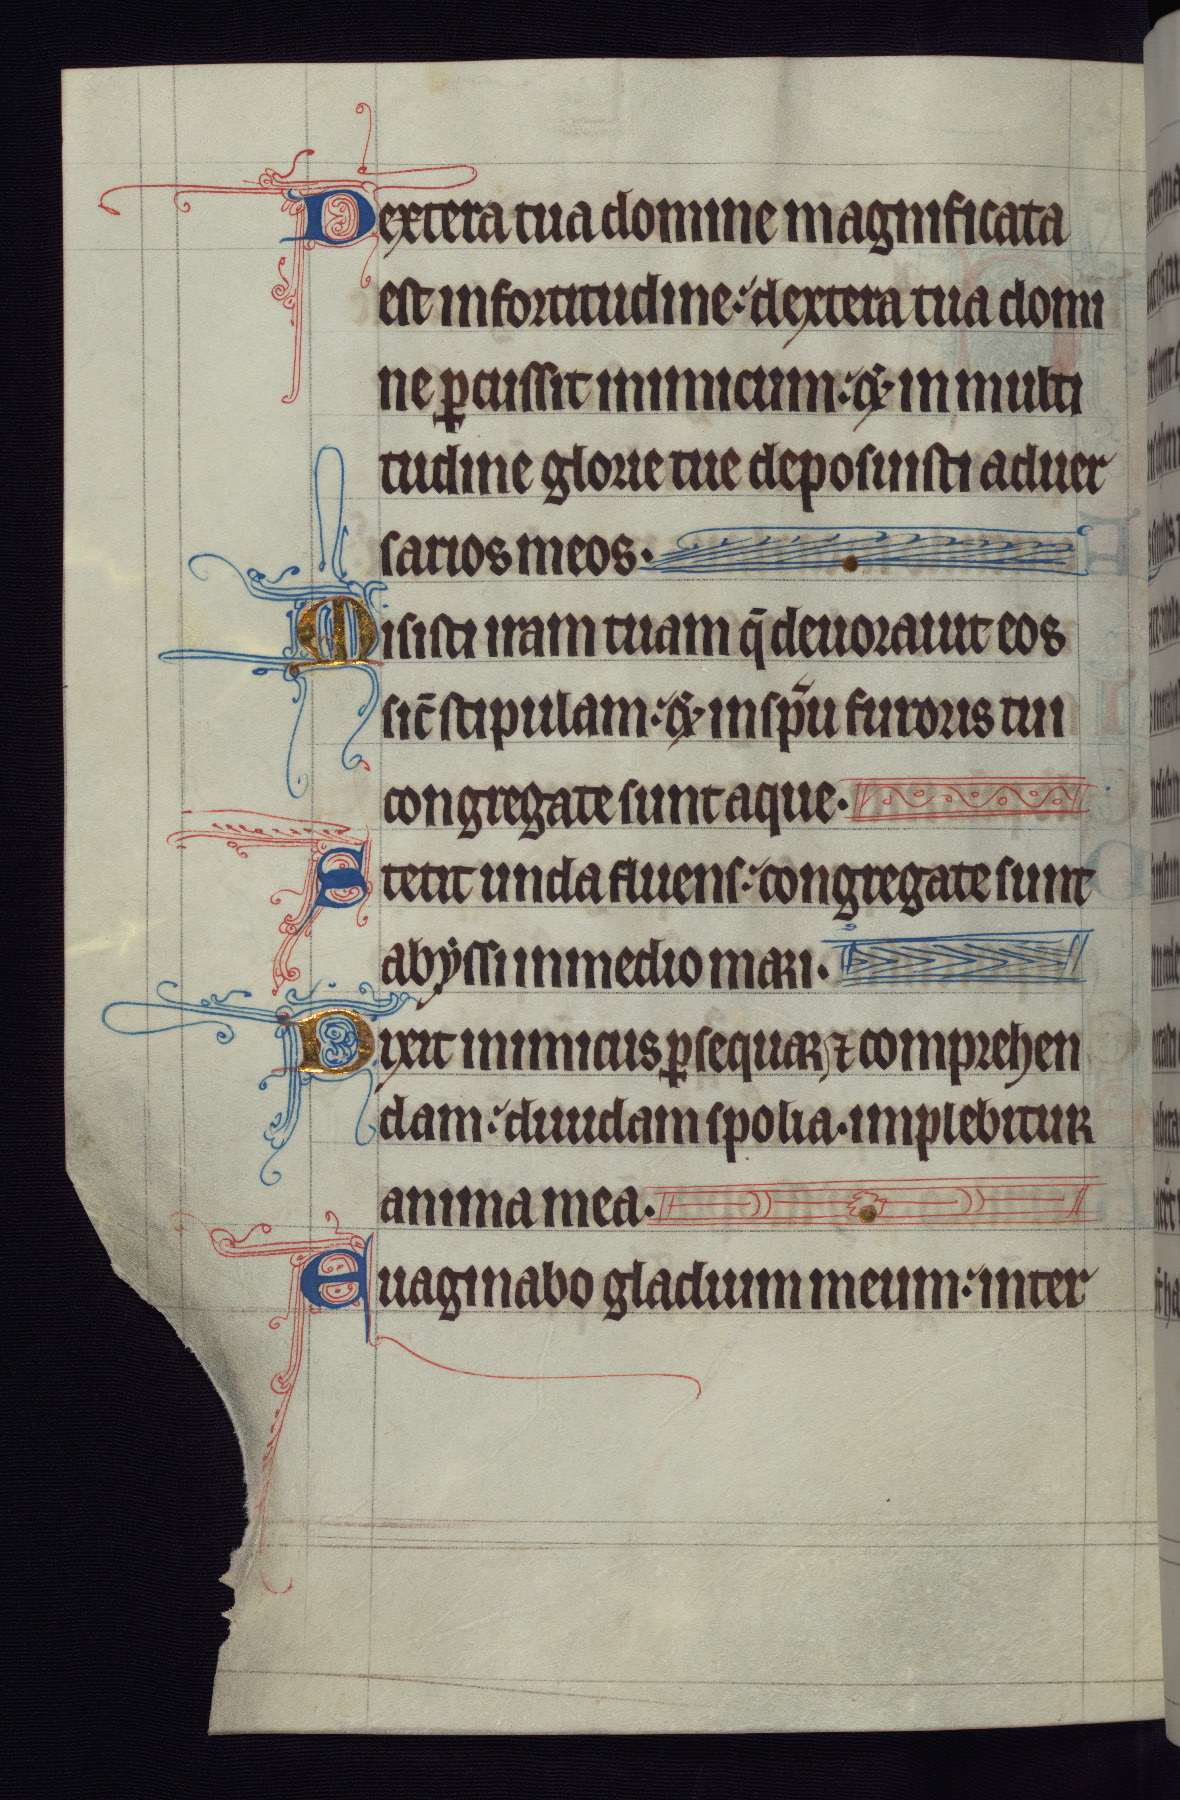 Dextera tua domine magnificata
est in fortitudine: dextera tua domi
ne ꝑcussit inimicum: & in multi
tudine glorie tue deposuisti aduer
sarios meos.
Misisti iram tuam q̄ deuorauit eos
sic̄ stipulam: & in sp̄u furoris tui
congregate sunt aque.
Stetit unda fluens: congregate sunt
abyssi in medio mari.
Dixit inimicus ꝑsequar ⁊ comprehen
dam: diuidam spolia. implebitur
anima mea.
Euaginabo gladium meum: inter